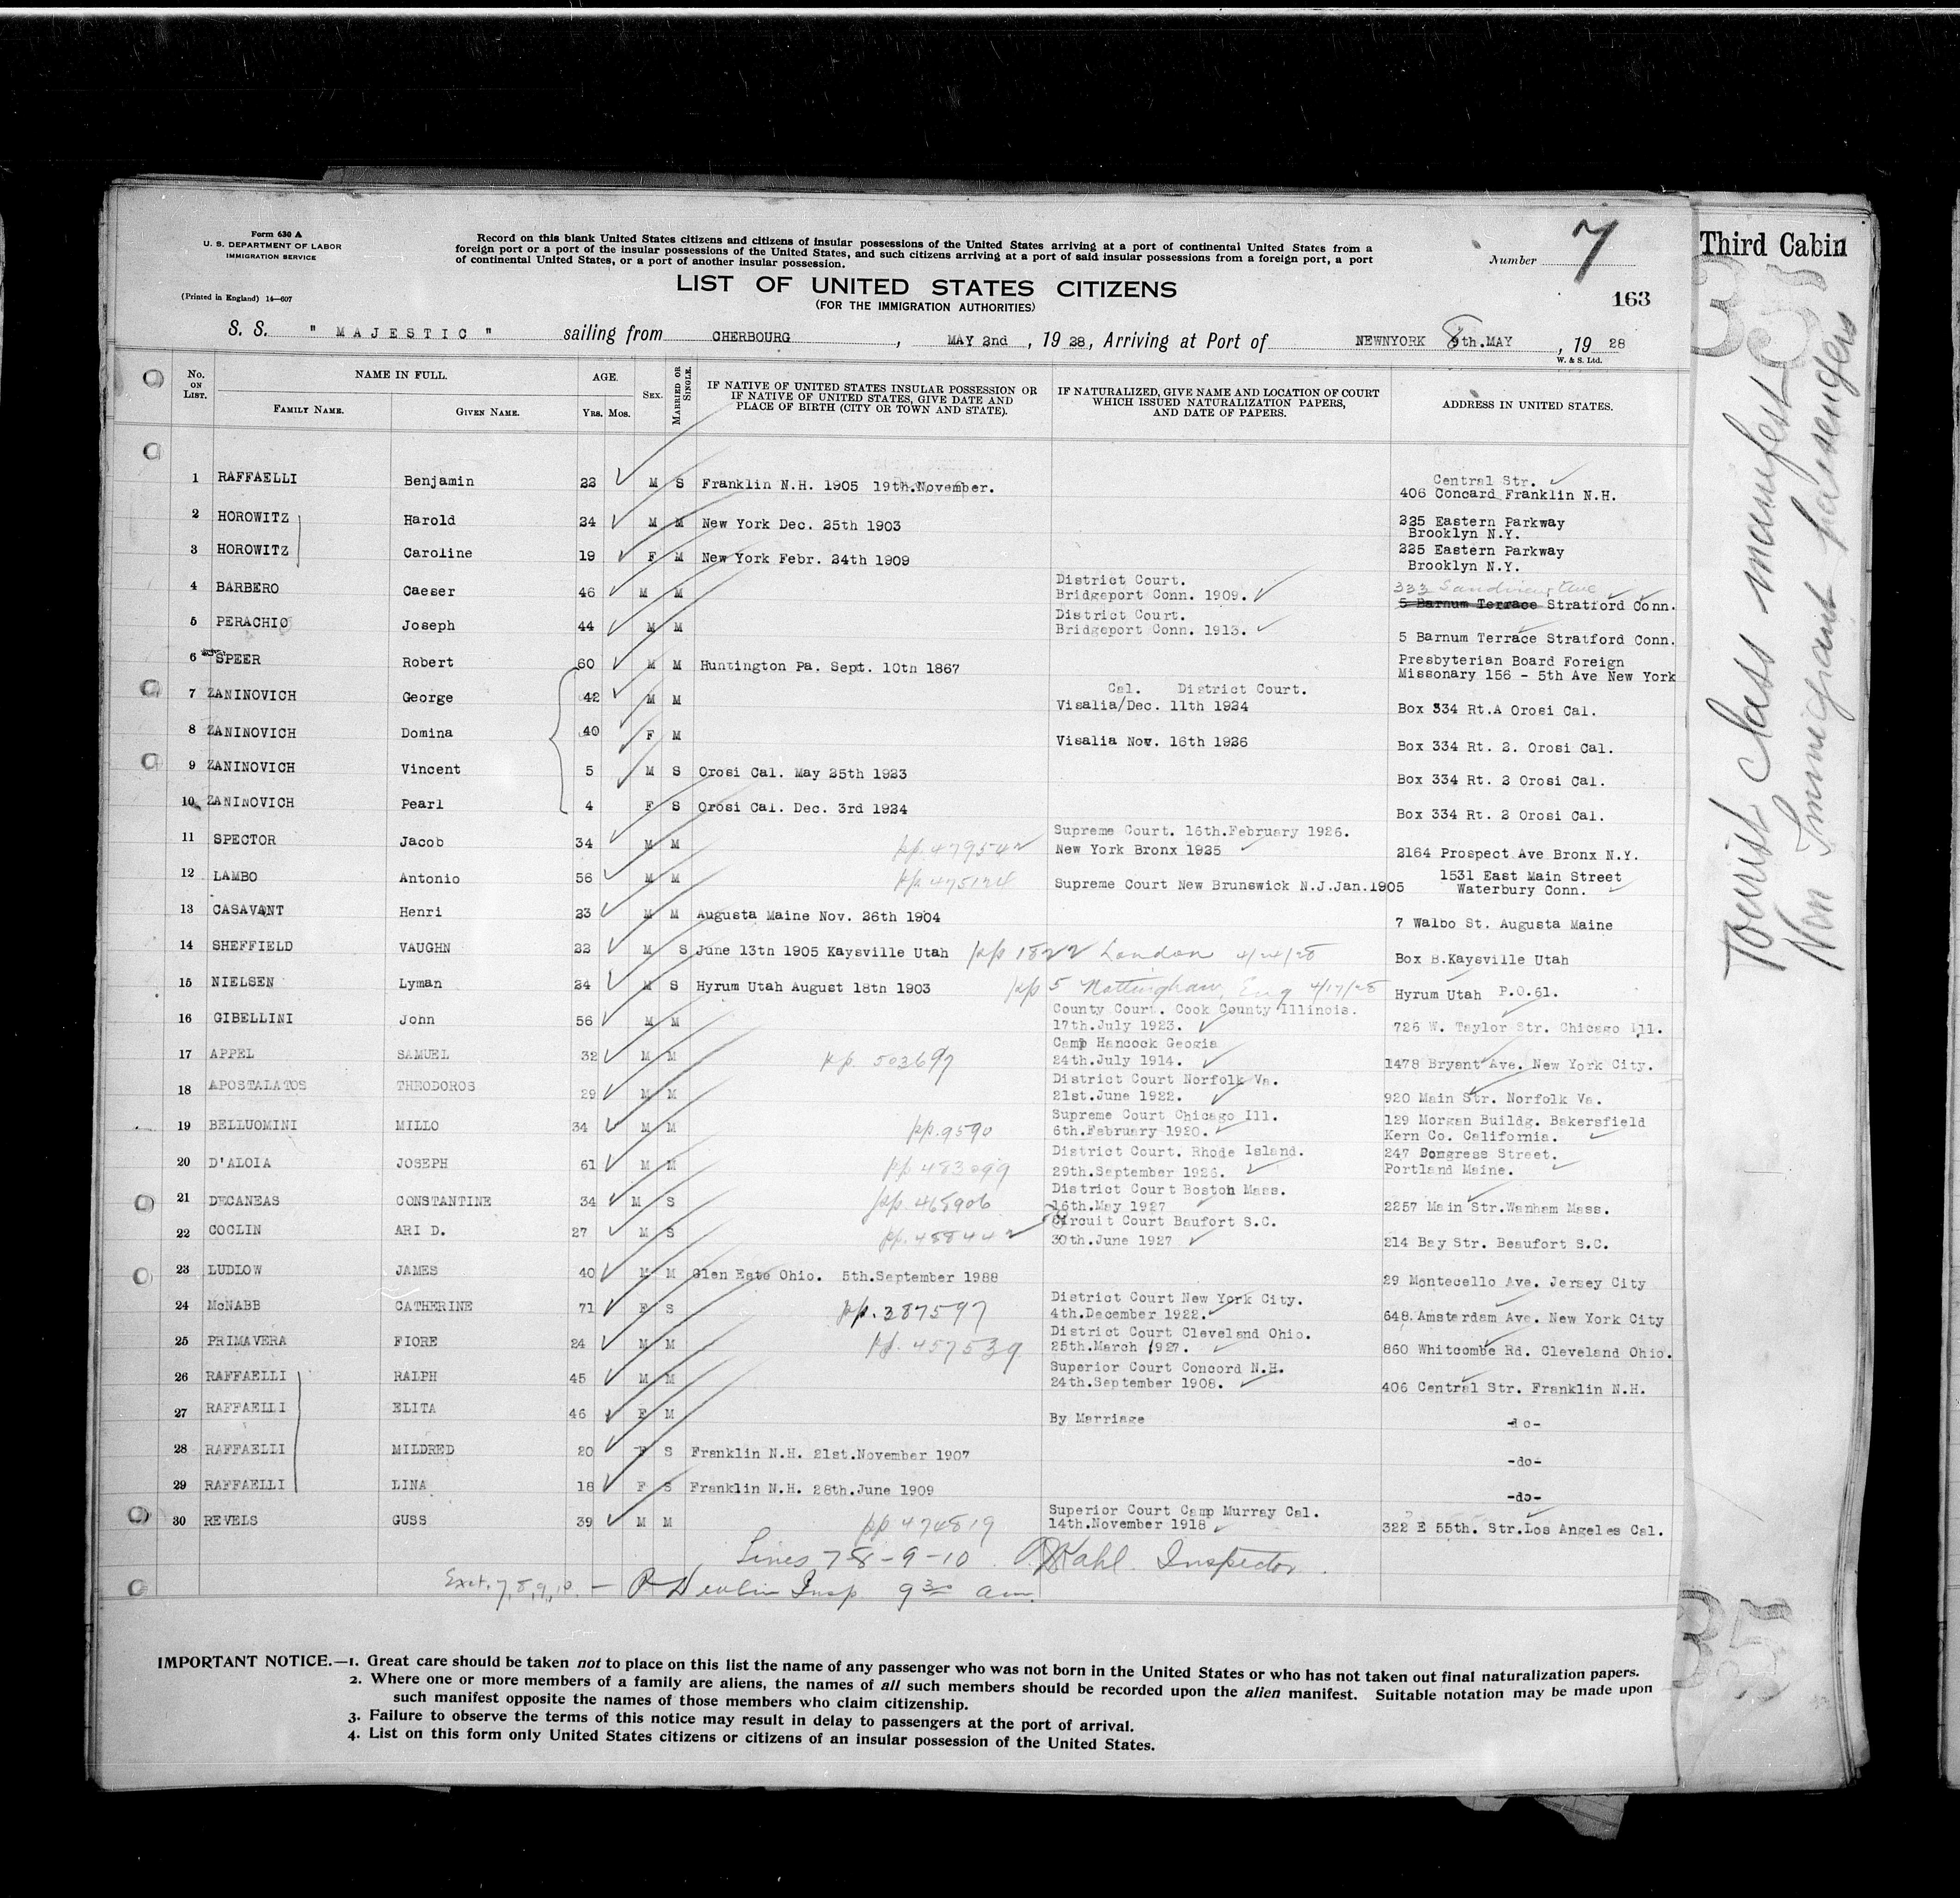 Form 630 A
U. S. DEPARTMENT OF LABOR
IMMIGRATION SERVICE
(Printed in England) 14—607
Record on this blank United States citizens and citizens of insular possessions of the United States arriving at a port of continental United States from a
foreign port or a port of the insular possessions of the United States, and such citizens arriving at a port of said insular possessions from a foreign port, a port
of continental United States, or a port of another insular possession.
LIST OF UNITED STATES CITIZENS
(FOR THE IMMIGRATION AUTHORITIES)
Number 7
163
Third Cabin
S. S. " MAJESTIC " sailing from CHERBOURG , MAY 2nd , 19 28, Arriving at Port of NEWNYORK 8th.MAY , 19 28
W. & S. Ltd.
No. ON LIST. NAME IN FULL. FAMILY NAME. GIVEN NAME. AGE. YRS. MOS. SEX. MARRIED OR SINGLE. IF NATIVE OF UNITED STATES INSULAR POSSESSION OR IF NATIVE OF UNITED STATES, GIVE DATE AND PLACE OF BIRTH (CITY OR TOWN AND STATE). IF NATURALIZED, GIVE NAME AND LOCATION OF COURT WHICH ISSUED NATURALIZATION PAPERS, AND DATE OF PAPERS. ADDRESS IN UNITED STATES.
1 RAFFAELLI Benjamin 22 M S Franklin N.H. 1905 19th.November. Central Str. 406 Concard Franklin N.H.
2 HOROWITZ Harold 24 M M New York Dec. 25th 1903 225 Eastern Parkway Brooklyn N.Y.
3 HOROWITZ Caroline 19 F M New York Febr. 24th 1909 225 Eastern Parkway Brooklyn N.Y.
4 BARBERO Caeser 46 M M District Court. Bridgeport Conn. 1909. 333 Sandview Ave 5 Barnum Terrace Stratford Conn.
5 PERACHIO Joseph 44 M M District Court. Bridgeport Conn. 1913. 5 Barnum Terrace Stratford Conn.
6 SPEER Robert 60 M M Huntington Pa. Sept. 10th 1867 Presbyterian Board Foreign Missonary 156 - 5th Ave New York
7 ZANINOVICH George 42 M M Cal. District Court. Visalia/Dec. 11th 1924 Box 334 Rt.A Orosi Cal.
8 ZANINOVICH Domina 40 F M Visalia Nov. 16th 1926 Box 334 Rt. 2. Orosi Cal.
9 ZANINOVICH Vincent 5 M S Orosi Cal. May 25th 1923 Box 334 Rt. 2 Orosi Cal.
10 ZANINOVICH Pearl 4 F S Orosi Cal. Dec. 3rd 1924 Box 334 Rt. 2 Orosi Cal.
11 SPECTOR Jacob 34 M M pp. 479542 Supreme Court. 16th.February 1926. New York Bronx 1925 2164 Prospect Ave Bronx N.Y.
12 LAMBO Antonio 56 M M Supreme Court New Brunswick N.J.Jan.1905 1531 East Main Street Waterbury Conn.
13 CASAVANT Henri 23 M M Augusta Maine Nov. 26th 1904 7 Walbo St. Augusta Maine
14 SHEFFIELD VAUGHN 22 M S June 13th 1905 Kaysville Utah pp 1822 London 4/24/28 Box B.Kaysville Utah
15 NIELSEN Lyman 24 M S Hyrum Utah August 18th 1903 pp 5 Nottingham, Eng 4/17/28 Hyrum Utah P.O.61.
16 GIBELLINI John 56 M M County Court. Cook County Illinois. 17th.July 1923. 726 W. Taylor Str. Chicago Ill.
17 APPEL SAMUEL 32 M M pp. 503697 Camp Hancock Geogia 24th.July 1914. 1478 Bryant Ave. New York City.
18 APOSTALATOS THEODOROS 29 M M District Court Norfolk Va. 21st.June 1922. 920 Main Str. Norfolk Va.
19 BELLUOMINI MILLO 34 M M pp.9590 Supreme Court Chicago Ill. 6th.February 1920. 129 Morgan Buildg. Bakersfield Kern Co. California.
20 D'ALOIA JOSEPH 61 M M pp 483099 District Court. Rhode Island. 29th.September 1926. 247 Congress Street. Portland Maine.
21 DECANEAS CONSTANTINE 34 M S pp. 468906 District Court Boston Mass. 16th.May 1927 2257 Main Str.Wanham Mass.
22 COCLIN ARI D. 27 M S pp. 458442 Circuit Court Baufort S.C. 30th.June 1927 214 Bay Str. Beaufort S.C.
23 LUDLOW JAMES 40 M M Glen Este Ohio. 5th.September 1988 29 Montecello Ave. Jersey City
24 McNABB CATHERINE 71 F S pp. 387597 District Court New York City. 4th.December 1922. 648 Amsterdam Ave. New York City
25 PRIMAVERA FIORE 24 M M pp. 457539 District Court Cleveland Ohio. 25th.March 1927. 860 Whitcombe Rd. Cleveland Ohio.
26 RAFFAELLI RALPH 45 M M Superior Court Concord N.H. 24th.September 1908. 406 Central Str. Franklin N.H.
27 RAFFAELLI ELITA 46 F M By Marriage -do-
28 RAFFAELLI MILDRED 20 F S Franklin N.H. 21st.November 1907 -do-
29 RAFFAELLI LINA 18 F S Franklin N.H. 28th.June 1909 -do-
30 REVELS GUSS 39 M M pp 474819 Superior Court Camp Murray Cal. 14th.November 1918 322 E 55th. Str.Los Angeles Cal.
Lines 7-8-9-10. Kahl. Inspector.
Exct. 7,8,9,10. — Devlin Insp. 9 30 am.
IMPORTANT NOTICE.—1. Great care should be taken not to place on this list the name of any passenger who was not born in the United States or who has not taken out final naturalization papers.
2. Where one or more members of a family are aliens, the names of all such members should be recorded upon the alien manifest. Suitable notation may be made upon
such manifest opposite the names of those members who claim citizenship.
3. Failure to observe the terms of this notice may result in delay to passengers at the port of arrival.
4. List on this form only United States citizens or citizens of an insular possession of the United States.
Tourist Class manifest
Non Immigrant passengers